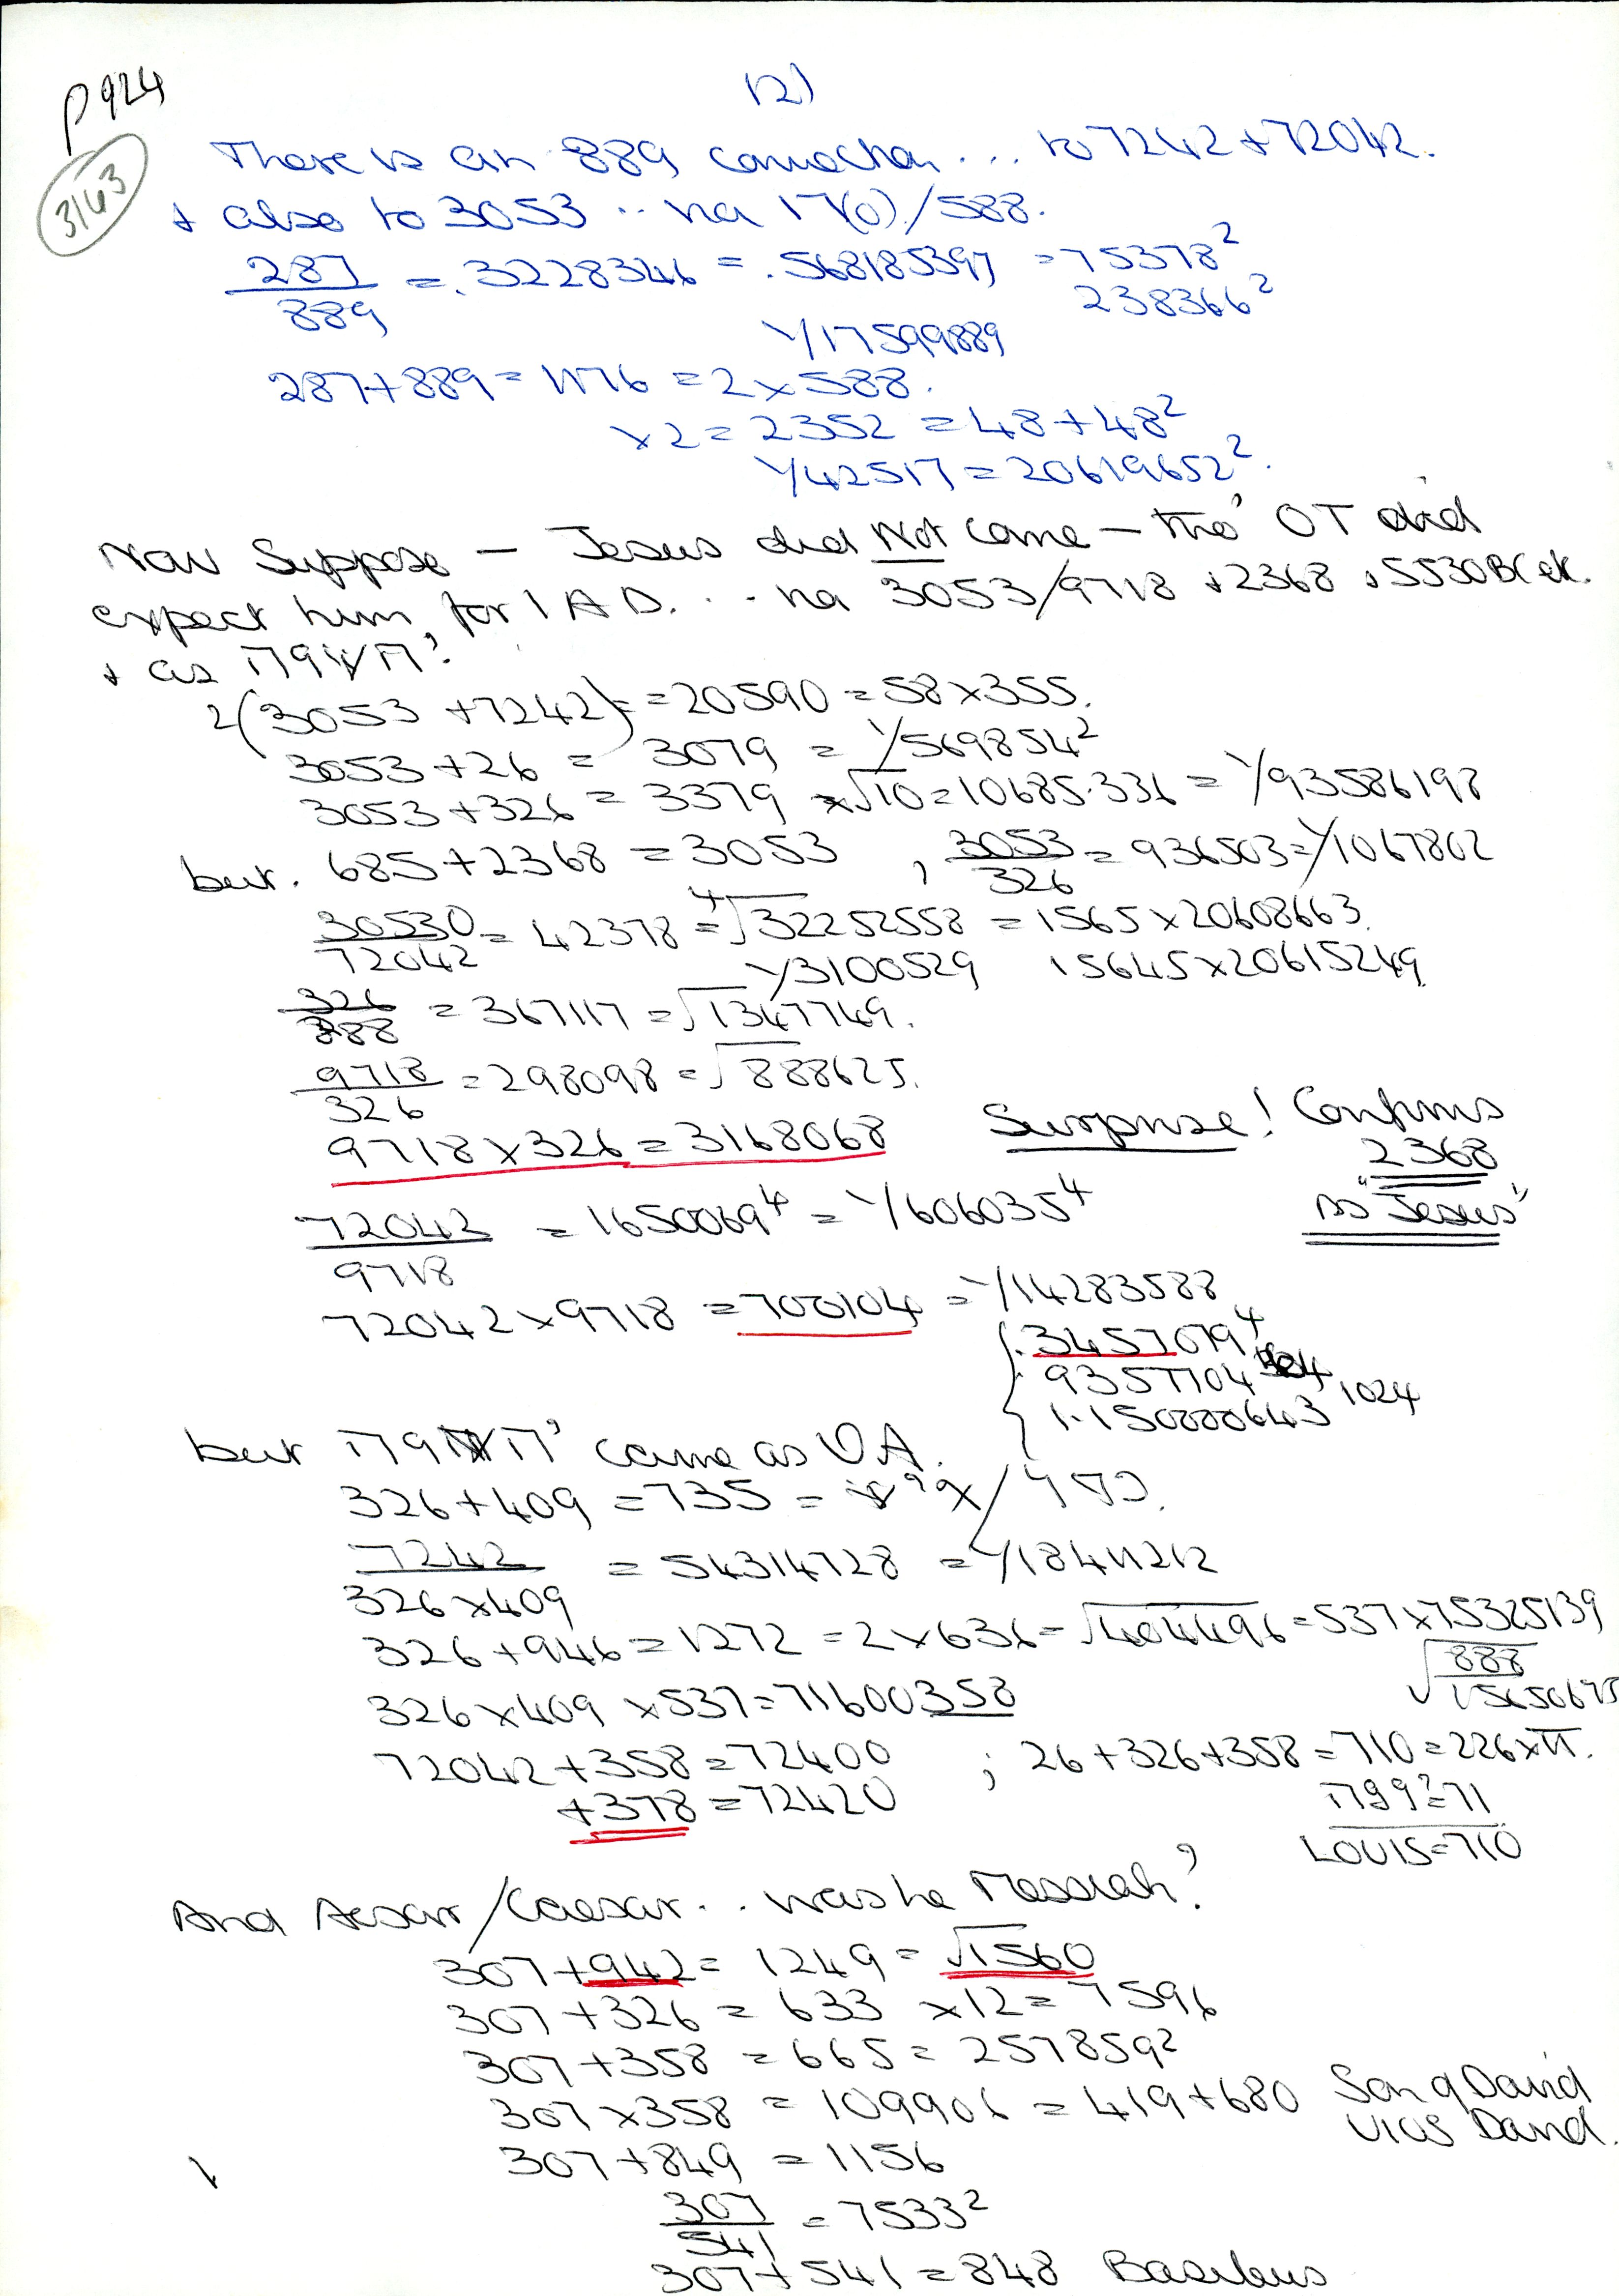 12)
P924
3163
There is an 889 connection ... to 7242 + 72042.
+ also to 3053 .. via 17(0)/588.
287/889 = .3228346 = .568185397 = 75378²
238366²
1/17599889
287+889 = 1176 = 2×588.
×2 = 2352 = 48+48²
1/42517 = 20619652².
Now Suppose – Jesus did Not come – tho' OT did
expect him for 1 AD. .. via 3053/9718 + 2368 + 5530BC etc.
+ as
2(3053+7242) = 20590 = 58×355.
3053+26 = 3079 = 1/569854²
3053+326 = 3379 ×√10 = 10685.336 = 1/93586198
but. 685+2368 = 3053 , 3053/326 = 936503 = 1/1067802
30530/72042 = 42378 = ⁴√32252558 = 1565×20608663.
1/3100529 15645×20615249
326/888 = 367117 = √1347749.
9718/326 = 298098 = √888625.
9718×326 = 3168068 Surprise! Confirms
2368
as "Jesus"
72042/9718 = 1650069⁴ = 1/606035⁴
72042×9718 = 700104 = 1/14283588
.3457079⁴
.9357704
1.150000643 1024
but came as VA.
326+409 = 735 =
7242/326×409 = 54314728 = 1/18411212
326+946 = 1272 = 2×636 = √404496 = 537×75325139
√888/15650675
326×409×537 = 71600358
72042+358 = 72400 ; 26+326+358 = 710 = 226×π.
+378 = 72420
=71
LOUIS=710
And Aesar/Caesar.. was he Messiah?
307+942 = 1249 = √1560
307+326 = 633 ×12 = 7596
307+358 = 665 = 257859²
307×358 = 109906 = 419+680 Son of David
UIOS David.
307+849 = 1156
307/541 = 7533²
307+541 = 848 Basileus